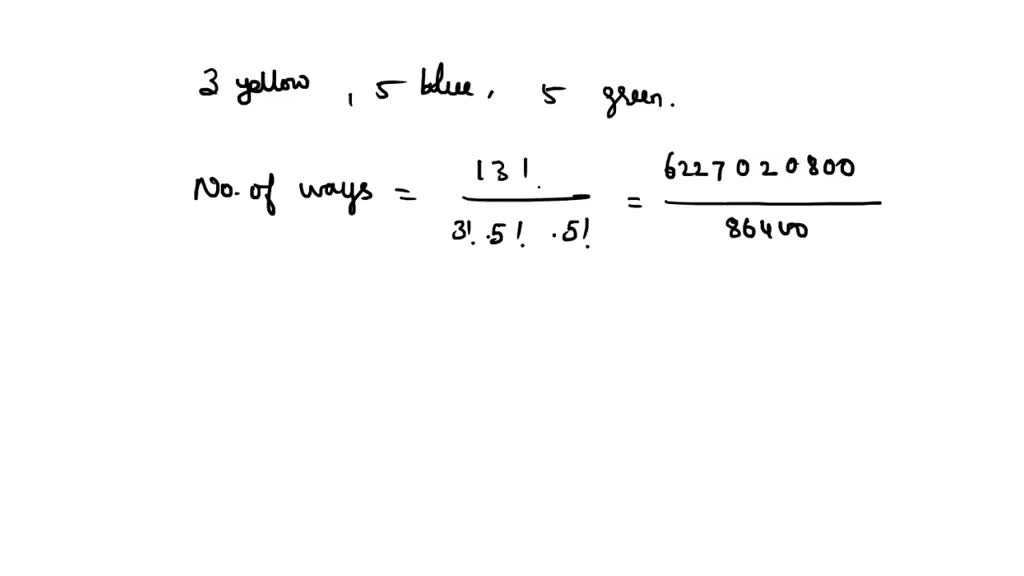 3 yellow, 5 blue, 5 green.
No. of ways = 13! / 3! . 5! . 5! = 6227020800 / 86400